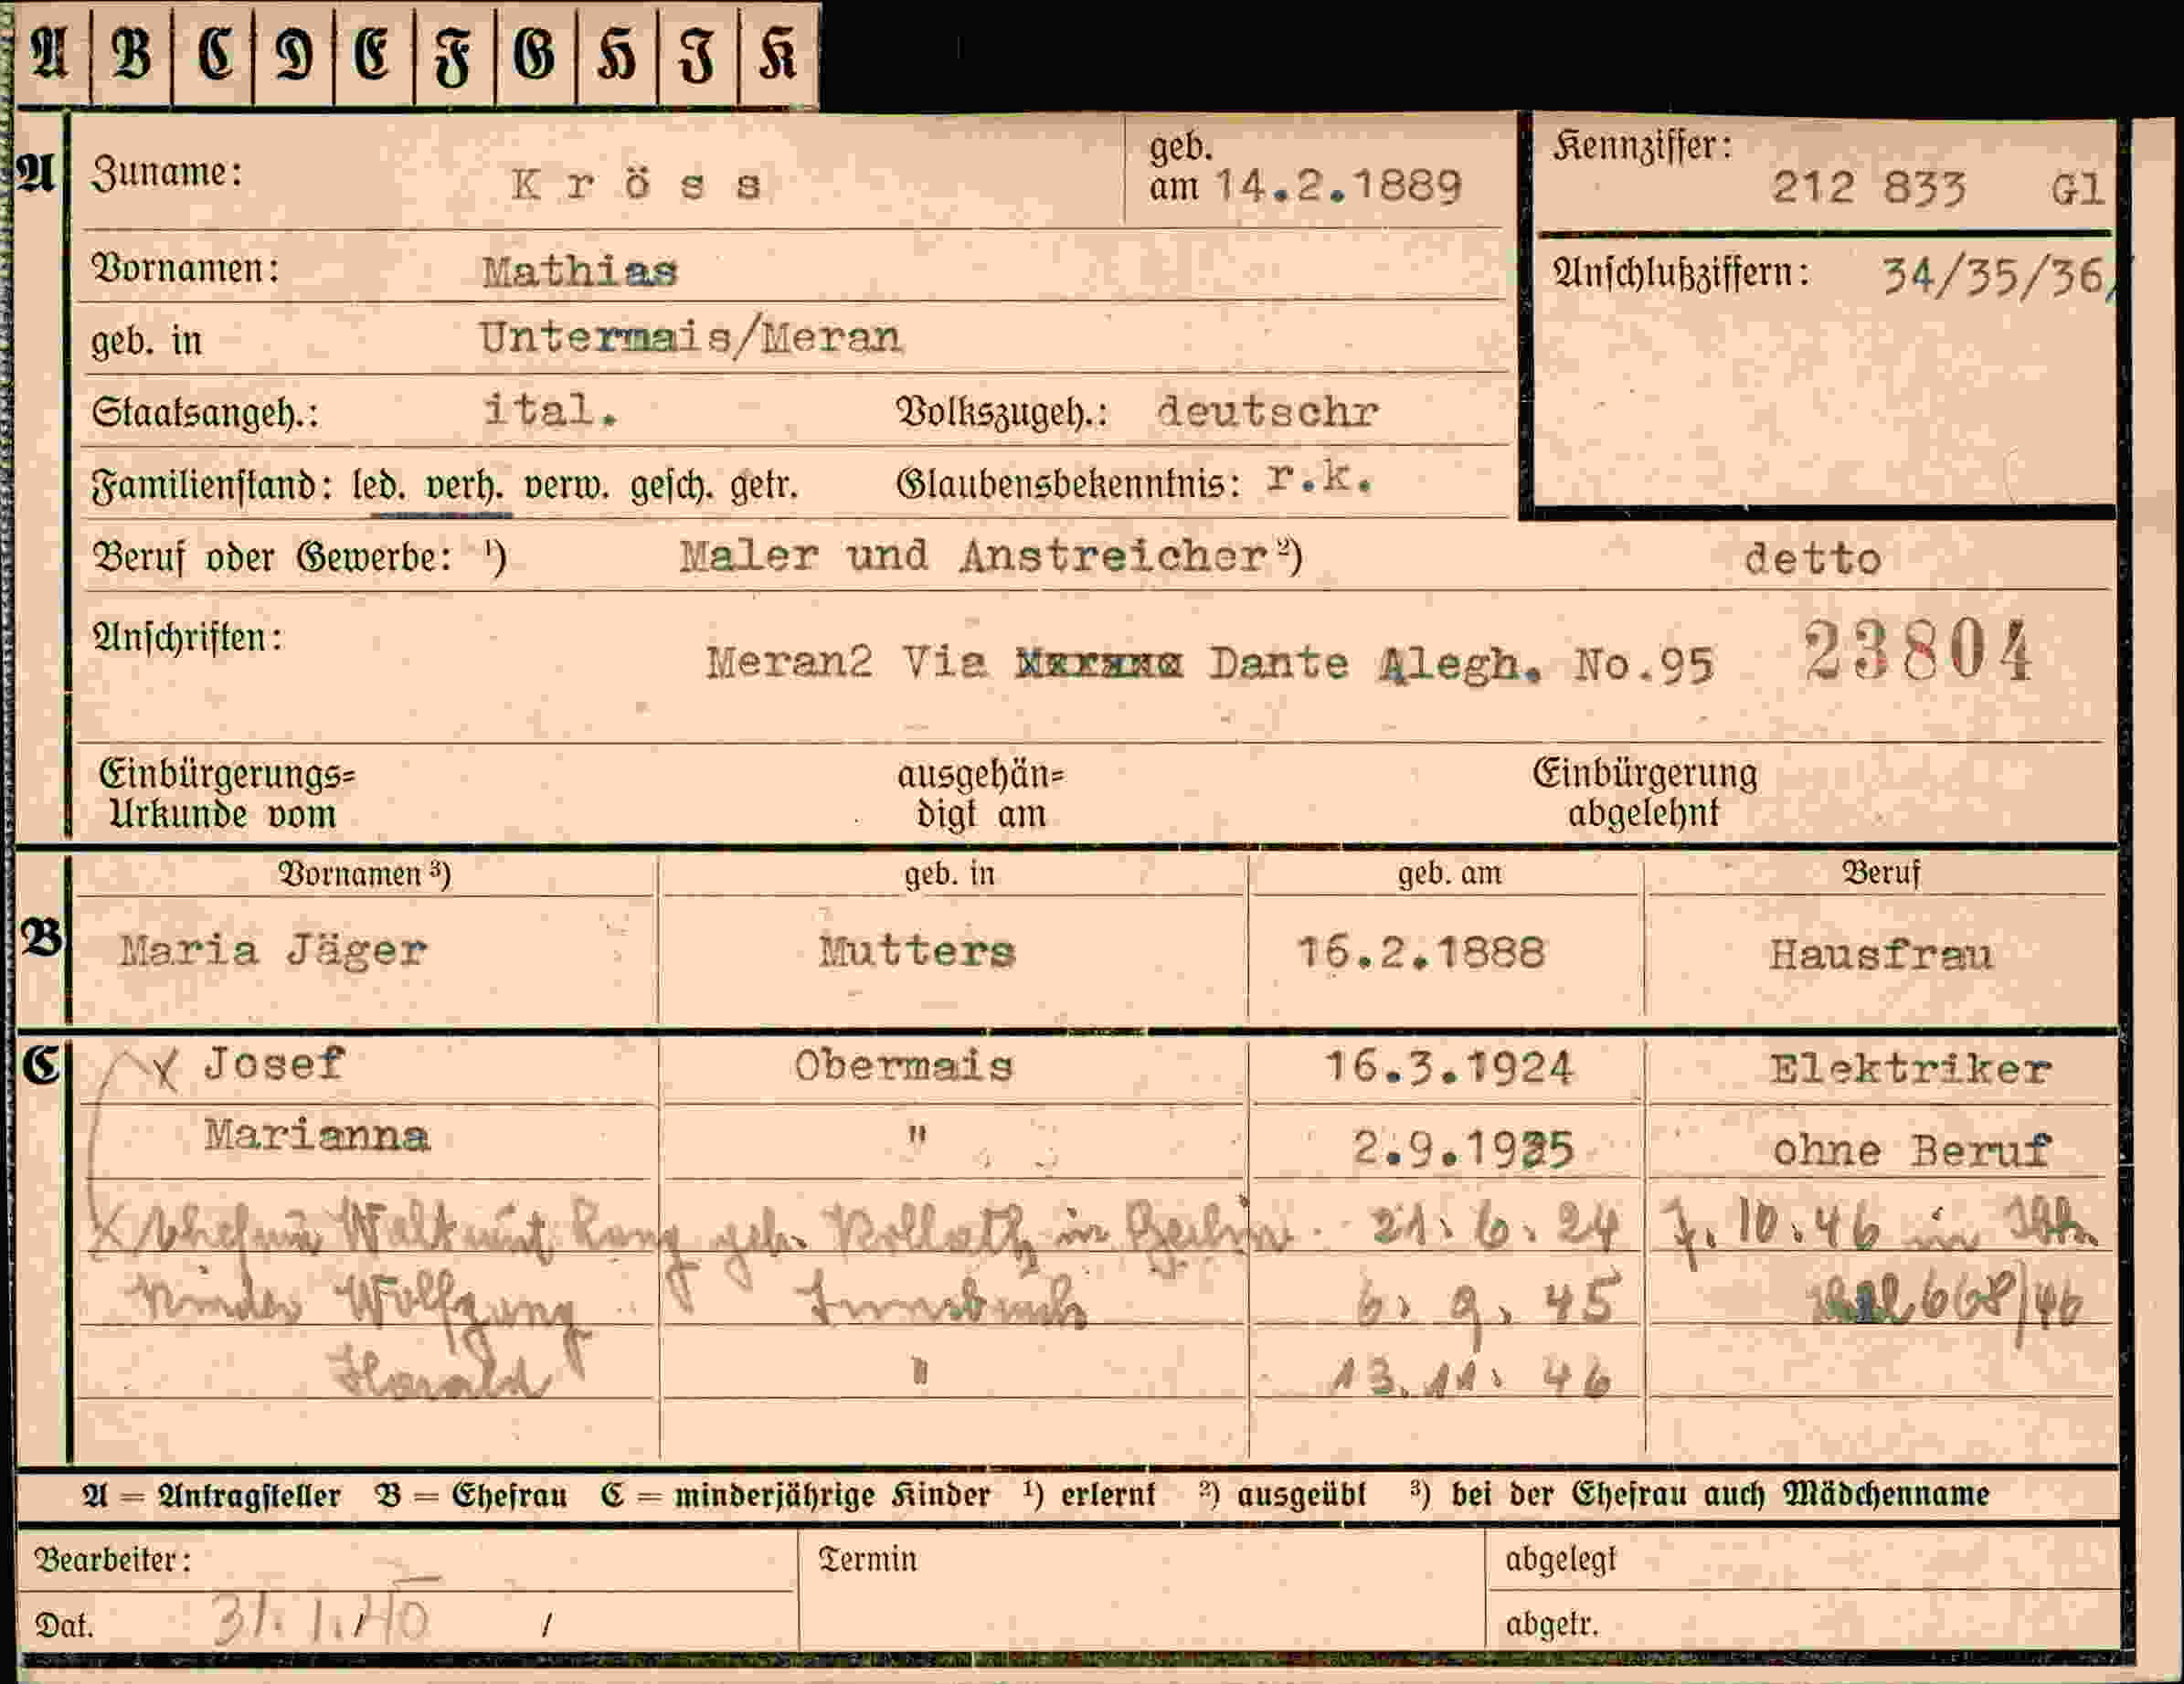 A B C D E F G H J K
A Zuname: Kröss geb. am 14.2.1889 Kennziffer: 212 833 Gl
Vornamen: Mathias Anschlußziffern: 34/35/36,
geb. in Untermais/Meran
Staatsangeh.: ital. Volkszugeh.: deutschr
Familienstand: led. verh. verw. gesch. getr. Glaubensbekenntnis: r.k.
Beruf oder Gewerbe: ¹) Maler und Anstreicher ²) detto
Anschriften: Meran2 Via Dante Alegh. No.95 23804
Einbürgerungs= ausgehän= Einbürgerung
Urkunde vom digt am abgelehnt
Vornamen ³) geb. in geb. am Beruf
B Maria Jäger Mutters 16.2.1888 Hausfrau
C Josef Obermais 16.3.1924 Elektriker
Marianna " 2.9.1925 ohne Beruf
geb. in Berlin 21.6.24 7.10.46 in
Kinder Wolfgang Innsbruck 6.9.45 668/46
Harald " 13.11.46
A = Antragsteller B = Ehefrau C = minderjährige Kinder ¹) erlernt ²) ausgeübt ³) bei der Ehefrau auch Mädchenname
Bearbeiter: Termin abgelegt
Dat. 31.1.40 / abgetr.